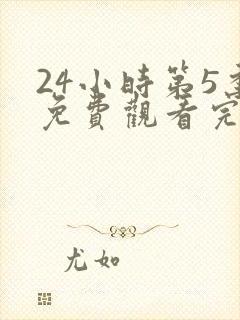 24小時第5
免費觀看完
尤如